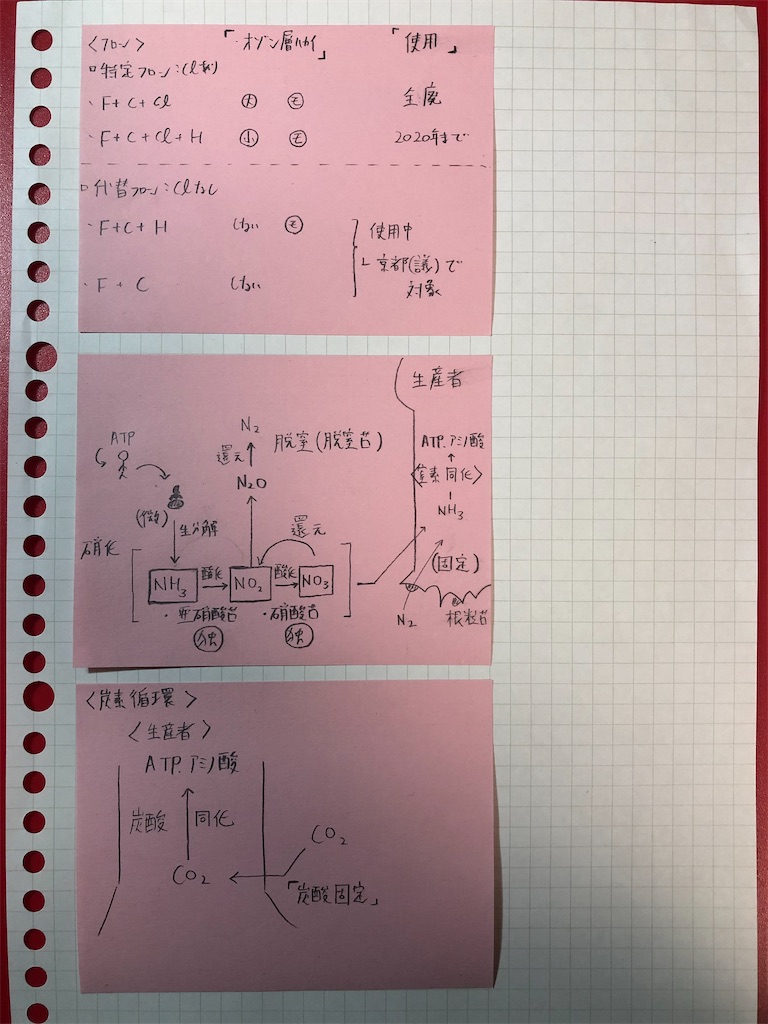 〈フロン〉 「オゾン層ハカイ」 「使用」
□特定フロン：Clあり
・F+C+Cl 大 モ 全廃
・F+C+Cl+H 小 モ 2020年まで
□代替フロン：Clなし
・F+C+H しない モ 使用中
└京都(議)で
・F+C しない 対象
生産者
N₂
ATP 還元 脱窒(脱窒菌) ATP.アミノ酸
N₂O 〈窒素同化〉
(微) 生分解 還元 NH₃
硝化 (固定)
NH₃ 酸化 NO₂ 酸化 NO₃
・亜硝酸菌 ・硝酸菌 N₂ 根粒菌
独 独
〈炭素循環〉
〈生産者〉
ATP.アミノ酸
炭酸 同化
CO₂
CO₂
「炭酸固定」